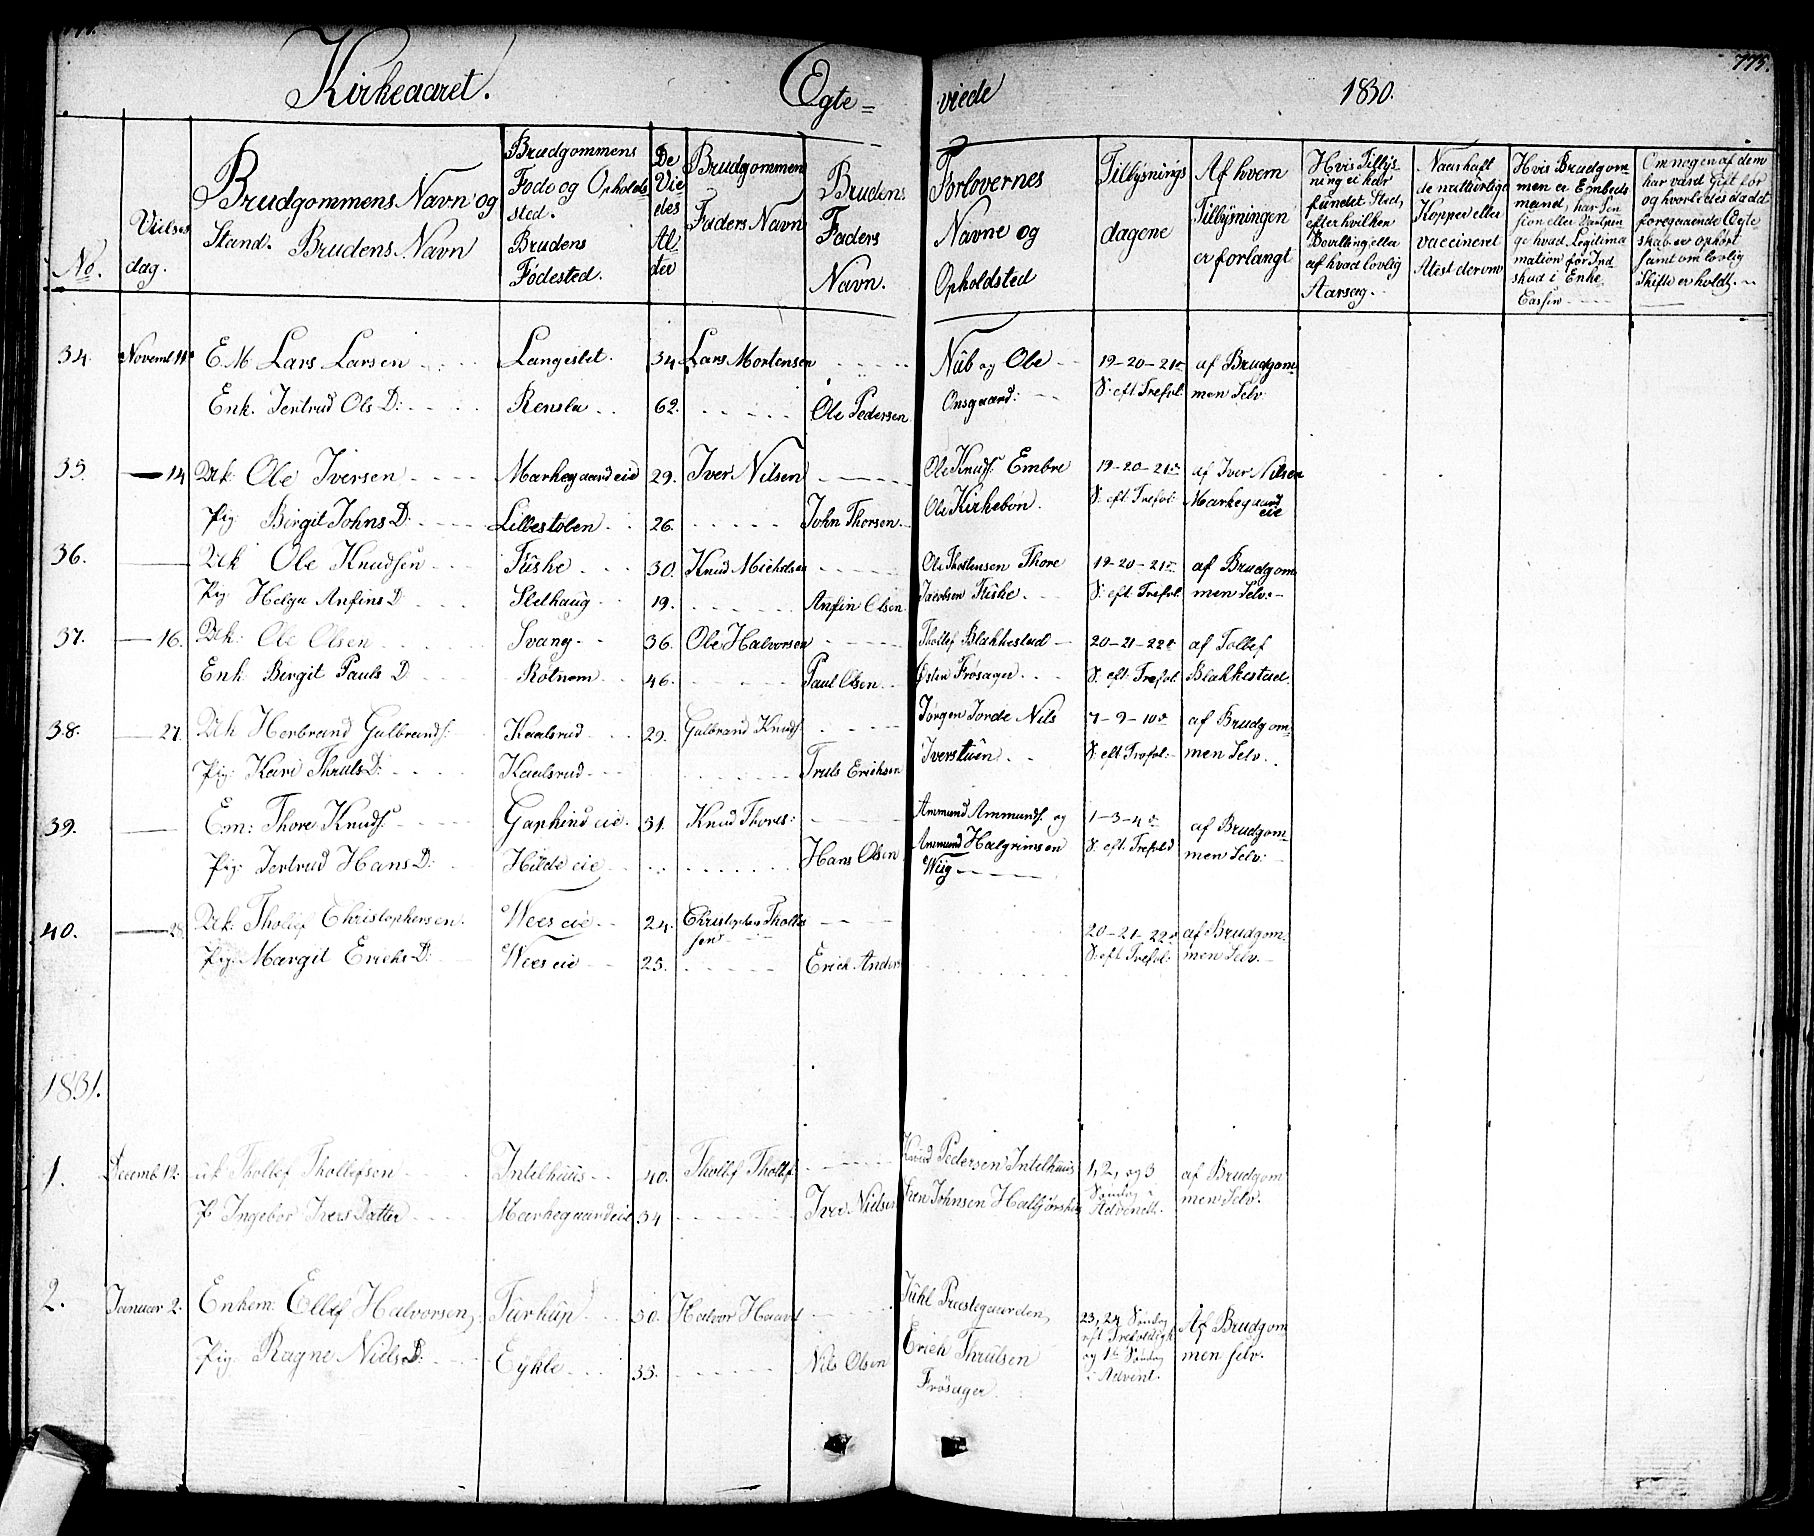 775.
Kirkeaaret. Egte= viede 1830.
No.
Vielses dag.
Brudgommens Navn og Stand. Brudens Navn
Brudgommens Føde og Opholds sted. Brudens Fødested.
De Vie des Al der
Brudgommens Faders Navn
Brudens Faders Navn.
Forlovernes Navne og Opholdsted
Tillysnings dagene
Af hvem Tillysningen er forlangt
Hvis Tillys- ning ei har fundet Sted, efter hvilken Bevilling eller af hvad lovlig Aarsag.
Naar haft de naturlige Kopper eller vaccineret Attest derom
Hvis Brudgom- men er Embeds mand, har Pen sion eller
Om nogen af dem har vært gift før og hvorledes da det foregaaende Egte skab er ophørt samt om lovlig Skifte er holdt.
34. Novemb 11 E M Lars Larsen Langeslet. 34 Lars Mortensen Nüb og Ole 19-20-21de af Brudgom-
Enk. Jertrud Ols D: Rensla 62. Ole Pedersen Onsgaard: S: eft Trefol: men Selv
35. 14 Uk Ole Iversen Markegaard eie 29. Iver Nilsen Ole Knuds. Embre 19-20-21de af Iver Nilsen
Pig Birgit Johns D: Lillestølen 26. John Thorsen Ole Kirkebøn. S: eft Trefol: Markegaard eie
36. Uk Ole Knudsen Tüske 30. Knud Michelsen Ole Thostensen Thore 19-20-21de af Brudgom
Pig Helga Anfins D Slethaug 19. Anfin Olsen Jacobsen Tüske S: eft. Trefol. men Selv.
37. 16. Uk: Ole Olsen Svang 36. Ole Halvorsen Thollef Blakkestad 20-21-22de af Tollef
Enk Birgit Pauls D Røtnem 46. Paul Olsen Østen Frøsager S. eft Trefol. Blakkestad.
38. 27. Uk Herbrand Gulbrands. Kaalsrud 29. Gulbrand Knuds Jørgen Jorde Nils 7-9-10de af Brudgom-
Pig: Kari Thruls D: Kaalsrud Truls Erichsen Iverstüen S. eft Trefol. men Selv.
39. Em: Thore Knuds. Gaphind eie. 31. Knud Thores: Ammund Ammunds. og 1-3-4de af Brudgom-
Pig Jertrud Hans D: Hilde eie Hans Olsen Ammund Halgrimsen Wiig S. eft. Trefold men Selv.
40. Uk: Thollef Christophersen. Wees eie 24. Christopher Thollef sen 20-21-22de af Brudgom-
Pig: Margit Erichs D: Wees eie 25. Erich Anders S: eft Trefol. men Selv.
1831.
1. Decemb 12. uk Thollef Thollefsen Intelhuus 40. Thollef Thollefs Knud Pedersen Intelhuus 1, 2, og 3 af Brudgom
P Ingebor Ivers Datter Markegaard eie 34 Iver Nielsen Johnsen Søndag i Advent. men Selv.
2. Januar 2. Enkem: Ellef Halvorsen 30. Halvor Juhl Præstegaarden, 23, 24 Søndag eft Trefoldigh Af Brudgom
Pig: Ragne Niels D: Eykle 35. Nils Olsen Erich Thrulsen Frøsager og 1ste Søndag i Advent. men selv.